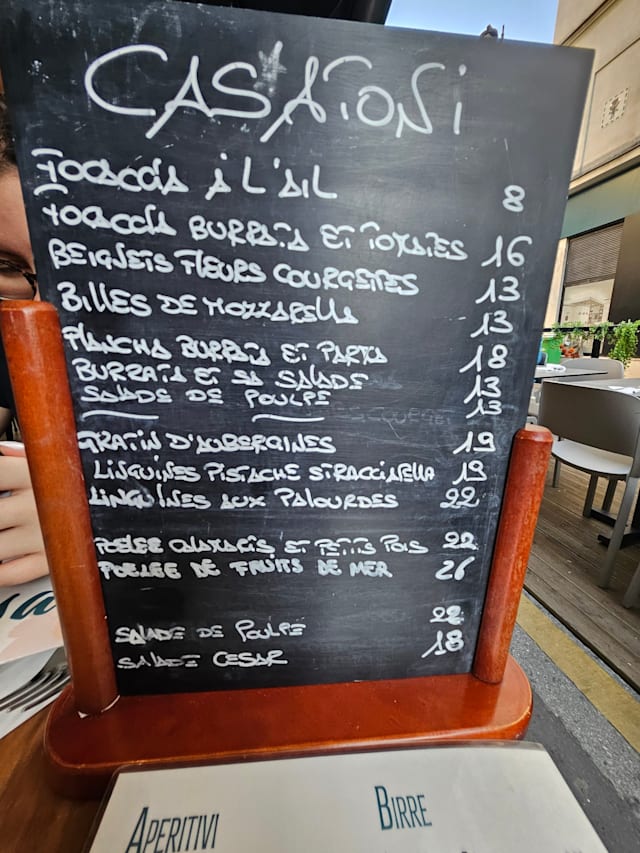 CASATONI
FOCACCIA À L'AIL 8
FOCACCIA BURRATA ET TOMATES 16
BEIGNETS FLEURS COURGETTES 13
BILLES DE MOZZARELLA 13
PLANCHA BURRATA ET PARMA 18
BURRATA ET SA SALADE 13
SALADE DE POULPE 13
GRATIN D'AUBERGINES 19
LINGUINES PISTACHE STRACCIATELLA 19
LINGUINES AUX PALOURDES 22
POELEE CALAMARS ET PETITS POIS 22
POELEE DE FRUITS DE MER 26
SALADE DE POULPE 22
SALADE CESAR 18
APERITIVI
BIRRE